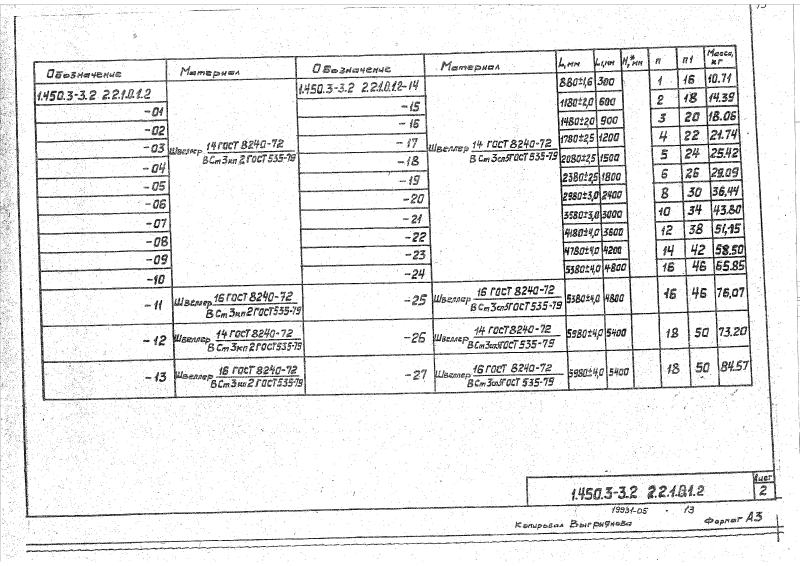 Обозначение Материал Обозначение Материал L, мм L1, мм H,* мм п п1 Масса, кг
1.450.3-3.2 2.2.1.0.1.2 Швеллер 14 ГОСТ 8240-72 / ВСт3кп2 ГОСТ 535-79 1.450.3-3.2 2.2.1.0.1.2-14 Швеллер 14 ГОСТ 8240-72 / ВСт3сп5 ГОСТ 535-79 880±1,6 300 1 16 10.71
-01 -15 1180±2,0 600 2 18 14.39
-02 -16 1480±2,0 900 3 20 18.06
-03 -17 1780±2,5 1200 4 22 21.74
-04 -18 2080±2,5 1500 5 24 25.42
-05 -19 2380±2,5 1800 6 26 29.09
-06 -20 2980±3,0 2400 8 30 36,44
-07 -21 3580±3,0 3000 10 34 43.80
-08 -22 4180±4,0 3600 12 38 51,15
-09 -23 4780±4,0 4200 14 42 58.50
-10 -24 5380±4,0 4800 16 46 65.85
-11 Швеллер 16 ГОСТ 8240-72 / ВСт3кп2 ГОСТ 535-79 -25 Швеллер 16 ГОСТ 8240-72 / ВСт3сп5 ГОСТ 535-79 5380±4,0 4800 16 46 76,07
-12 Швеллер 14 ГОСТ 8240-72 / ВСт3кп2 ГОСТ 535-79 -26 Швеллер 14 ГОСТ 8240-72 / ВСт3сп5 ГОСТ 535-79 5980±4,0 5400 18 50 73.20
-13 Швеллер 16 ГОСТ 8240-72 / ВСт3кп2 ГОСТ 535-79 -27 Швеллер 16 ГОСТ 8240-72 / ВСт3сп5 ГОСТ 535-79 5980±4,0 5400 18 50 84.57
1.450.3-3.2 2.2.1.0.1.2 Лист 2
19931-05 13
Копировал Формат А3